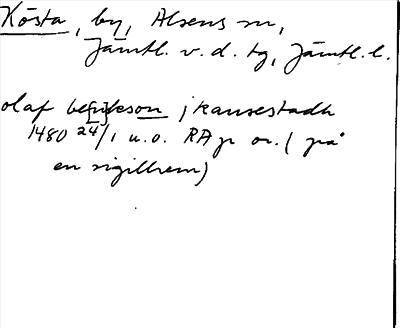 Kösta, by, Alsens sn,
Jämtl. v. d. tg, Jämtl. l.
olaf be[n]kson j kansestadh
1480 24/1 u.o. RA p or. ( på
en sigillrem)